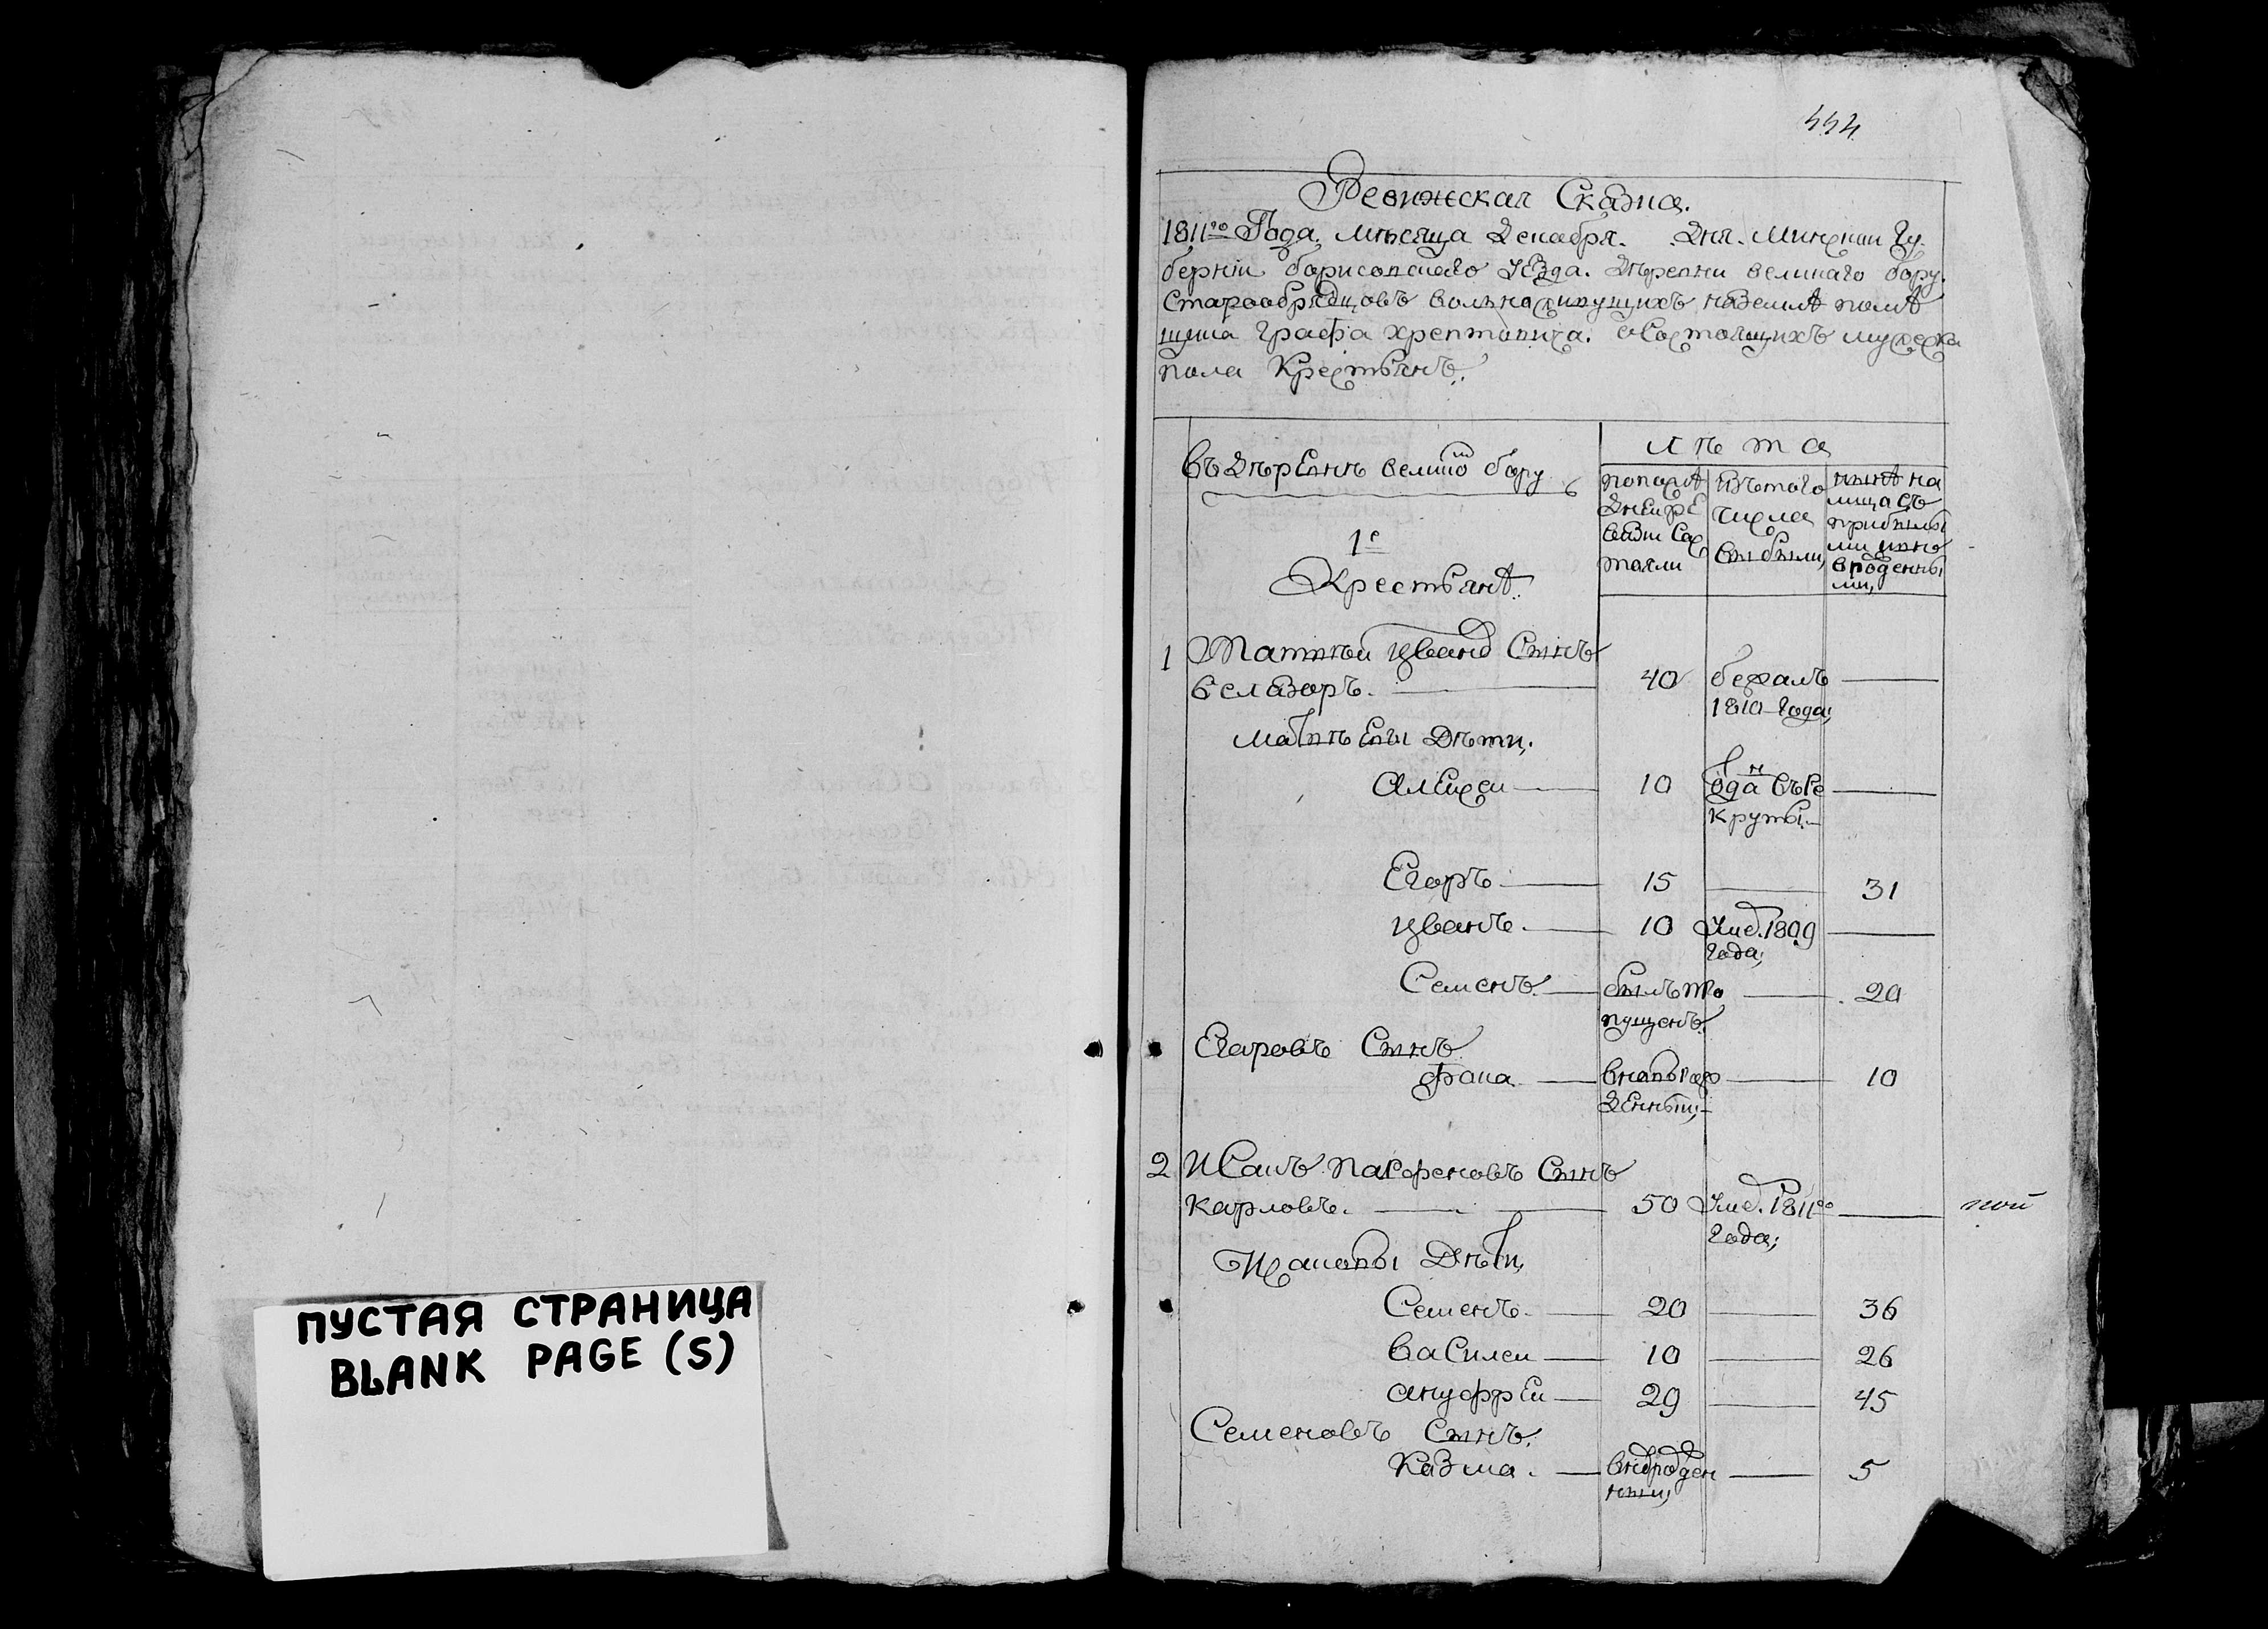 444
Ревижская Сказка.
1811го Года. Мѣсяца Декабря. Дня. Минскои Гу
берніи борисовскаго уѣзда. Дѣревни великаго бору.
Старообрядцовъ вольна живущихъ наземлѣ помѣ
щика графа хрептовича. осостоящихъ мужеска
пола Крестьянъ.
въ Дѣревнѣ велико бору
лѣта
попослѣ
Днеи ре
визи сос
тояли
изътого
числа
выбыли,
нынѣ на
лицо съ
прибылы
ми иново
рожденны
ми,
1е
Крестьянѣ.
1 Матвѣи ивано Сынъ
велазоръ. 40 бежалъ
1810 Года;
Матвѣевы Дѣти,
Алексеи 10 одан въре
круты
Егоръ 15 31
иванъ. 10 Уме. 1809
Года;
Семенъ. былъ про 20
пущенъ.
Егоровъ Сынъ
фома вновь рож 10
денныи;
2 Исакъ парфеновъ Сынъ
карловъ. 50 Уме. 1811го
Года;
пои
Исаковы Дѣти,
Семенъ 20 36
василеи 10 26
ануффреи 29 45
Семеновъ Сынъ.
Казма. внорожден 5
ныи,
ПУСТАЯ СТРАНИЦА
BLANK PAGE (S)